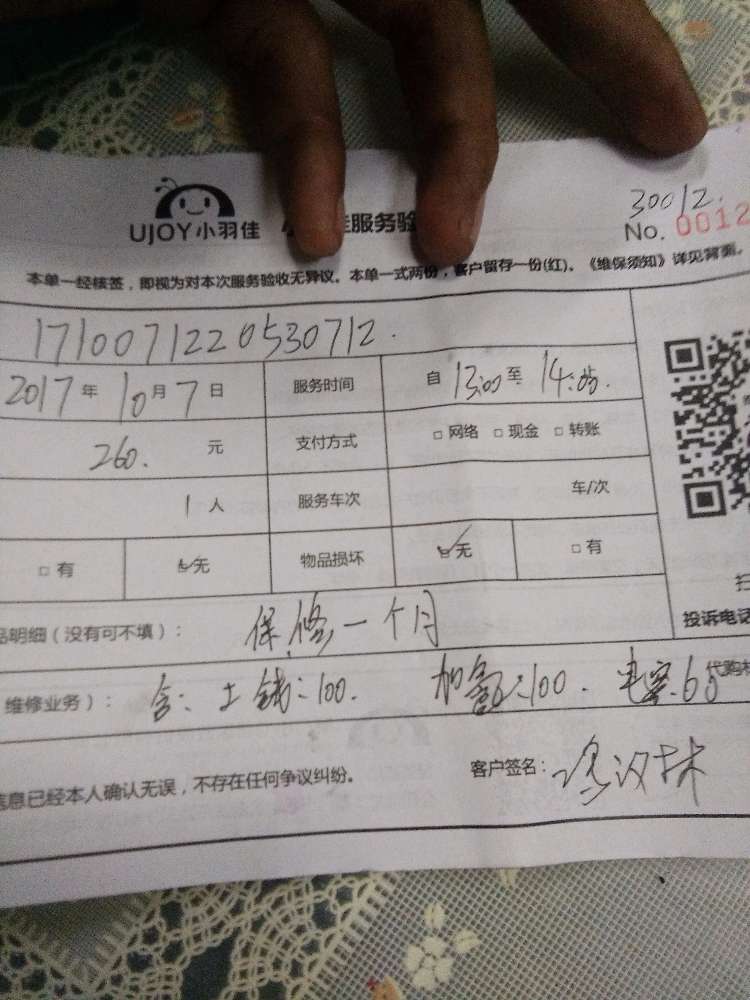 30012.
UJOY小羽佳 服务验
No. 0012
本单一经核签，即视为对本次服务验收无异议。本单一式两份，客户留存一份(红)。《维保须知》详见背面。
1710071220530712.
2017年10月7日 服务时间 自13:00至14:05.
260. 元 支付方式 □网络 □现金 □转账
1人 服务车次 车/次
□有 ☑无 物品损坏 ☑无 □有
扫
品明细（没有可不填）： 保修一个月 投诉电话
维修业务）： 含: 工钱:100. 加氟:100. 电容.65 代购材
信息已经本人确认无误，不存在任何争议纠纷。 客户签名: